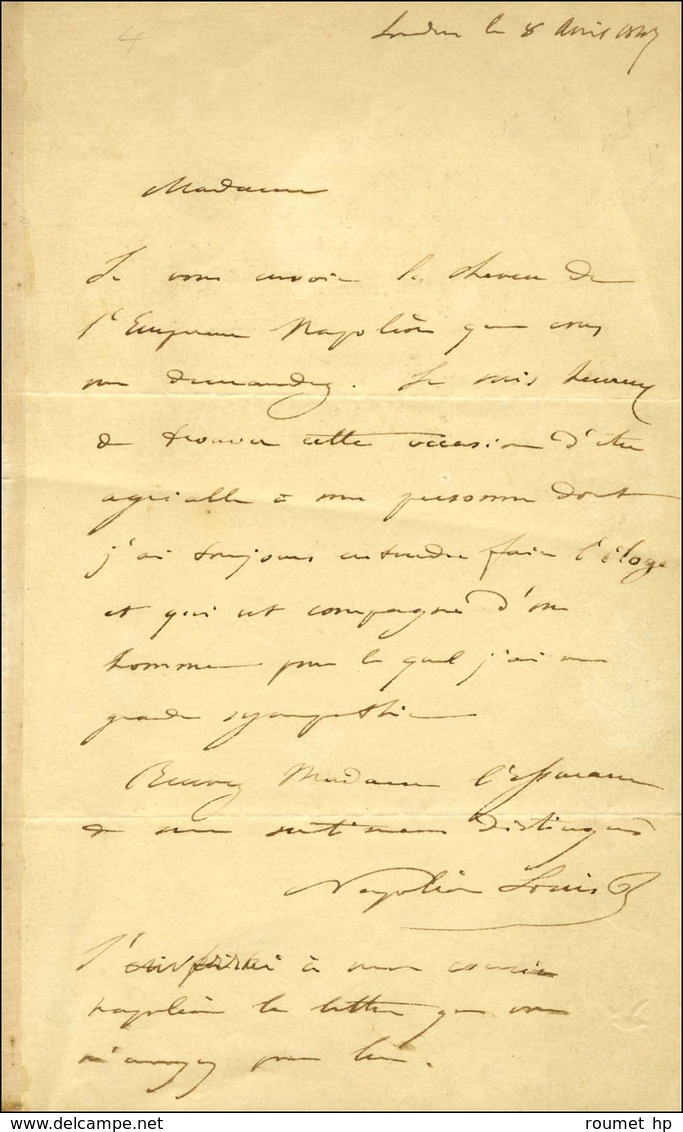 Londres le 8 Avril 1847
Madame
Je vous envoie les cheveux de
l'Empereur Napoléon que vous
me demandez. Je suis heureux
de trouver cette occasion d'être
agréable à une personne dont
j'ai toujours entendu faire l'éloge
et qui est compagne d'un
homme pour le quel j'ai une
grande sympathie
Recevez Madame l'assurance
de mes sentimens distingués
Napoléon Louis B
à mon cousin
Napoléon la lettre que vous
m'envoyez pour lui.
roumet hp